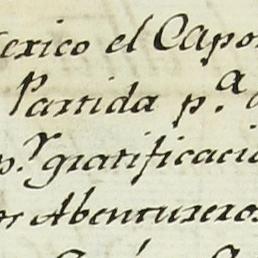 exico el Capo
Partida p.ᵃ
p.ʳ gratificaci
or Abentureros